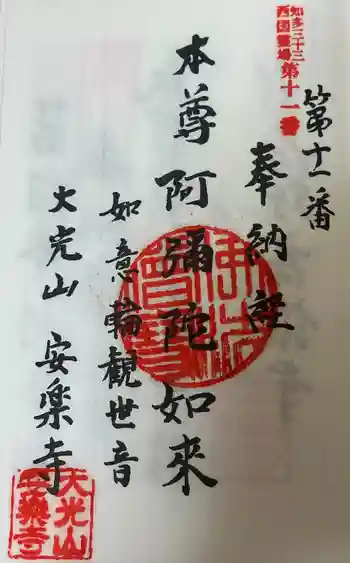 知多三十三
西国霊場
第十一番
第十一番
奉納経
本尊阿彌陀如来
如意輪觀世音
大光山 安楽寺
大光山
安樂寺